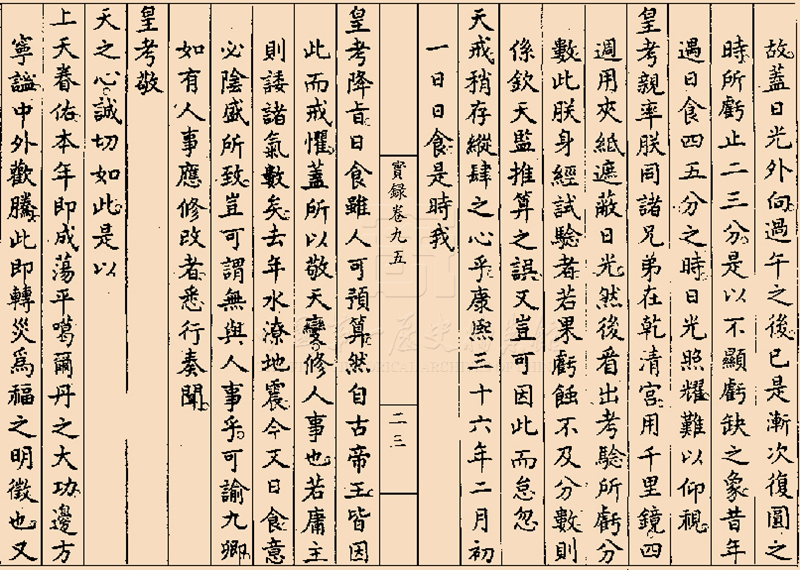 故蓋日光外向過午之後已是漸次復圓之
時所虧止二三分是以不顯虧缺之象昔年
遇日食四五分之時日光照耀難以仰視
皇考親率朕同諸兄弟在乾清宮用千里鏡四
週用夾紙遮蔽日光然後看出考驗所虧分
數此朕身經試驗者若果虧蝕不及分數則
係欽天監推算之誤又豈可因此而怠忽
天戒稍存縱肆之心乎康熙三十六年二月初
一日日食是時我
實錄卷九五
二三
皇考降旨日食雖人可預算然自古帝王皆因
此而戒懼蓋所以敬天變修人事也若庸主
則諉諸氣數矣去年水潦地震今又日食意
必陰盛所致豈可謂無與人事乎可諭九卿
如有人事應修改者悉行奏聞
皇考敬
天之心誠切如此是以
上天眷佑本年即成蕩平噶爾丹之大功邊方
寧謐中外歡騰此即轉災為福之明徵也又